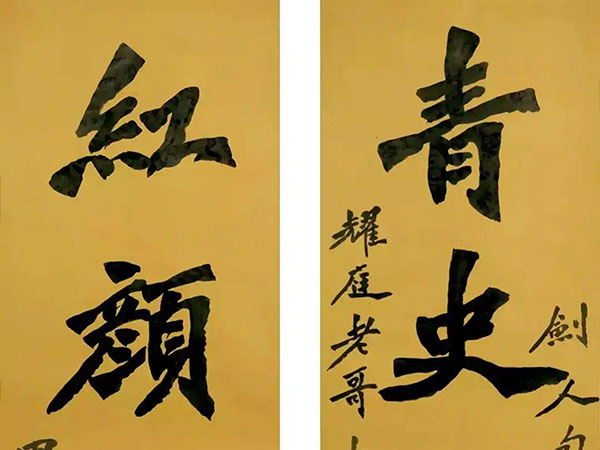 劍人
青史
耀庭老哥
紅顏